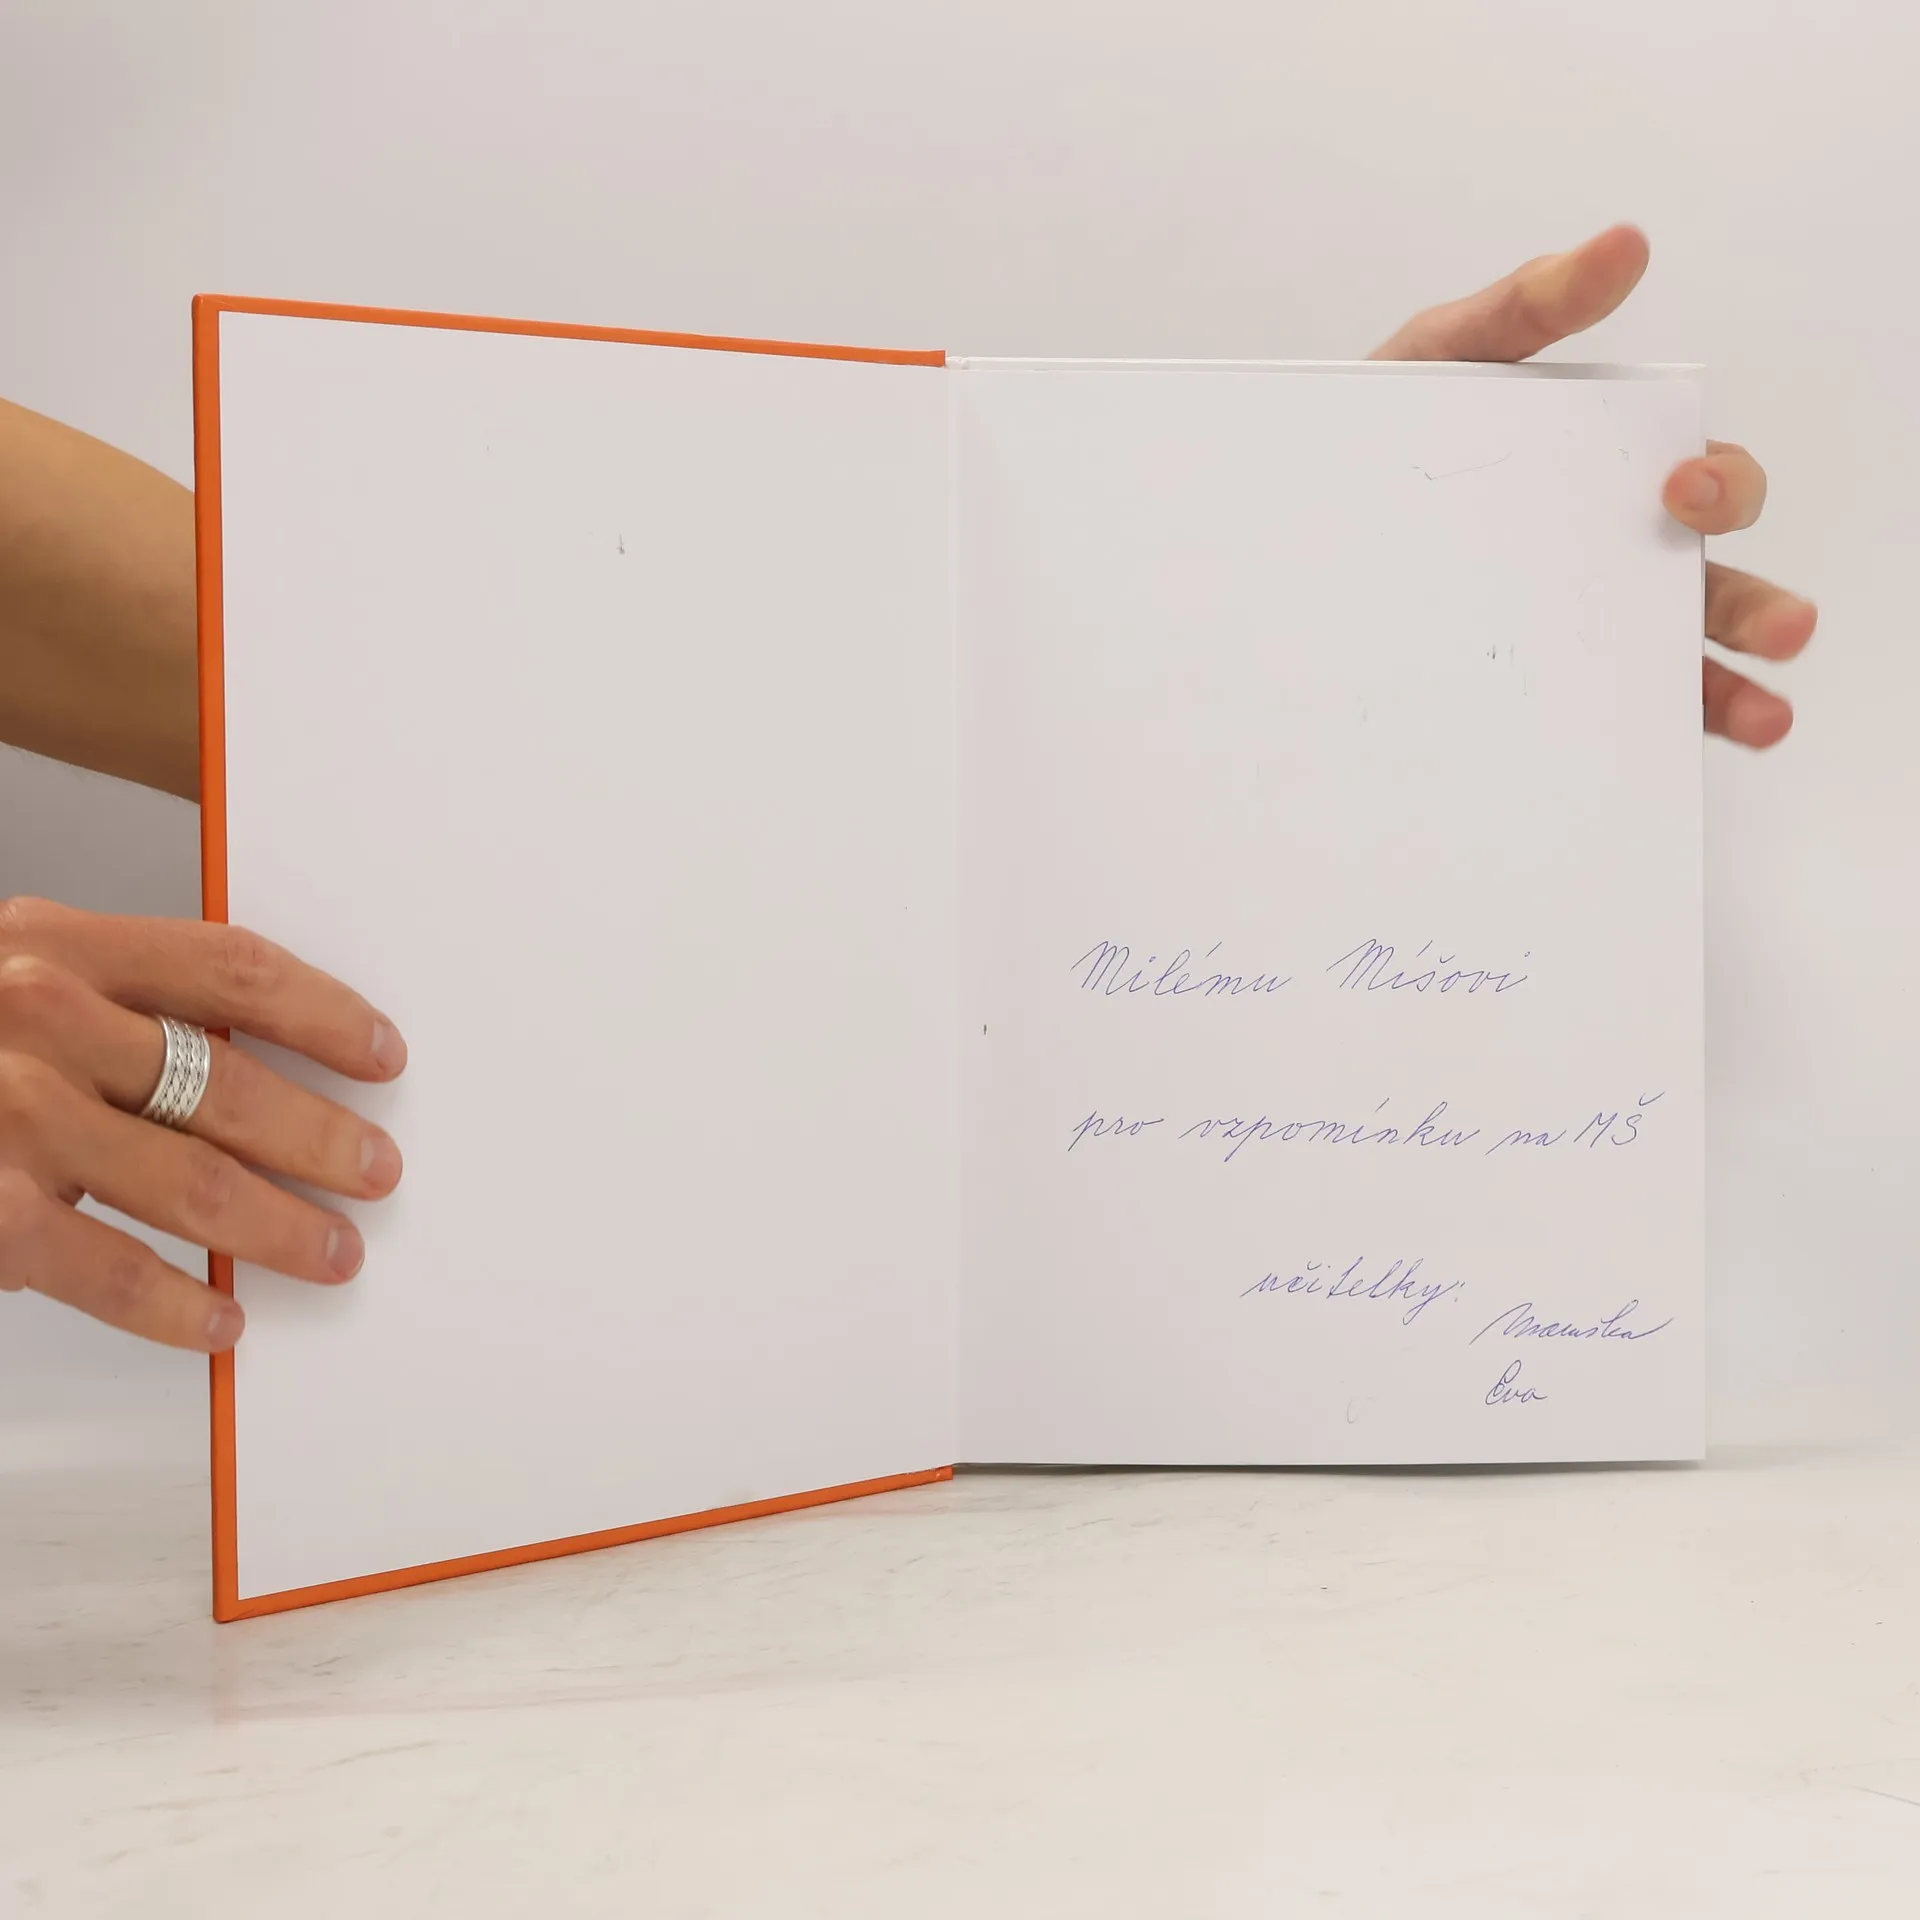 Milému Míšovi
pro vzpomínku na MŠ
učitelky:
Maruška
Eva